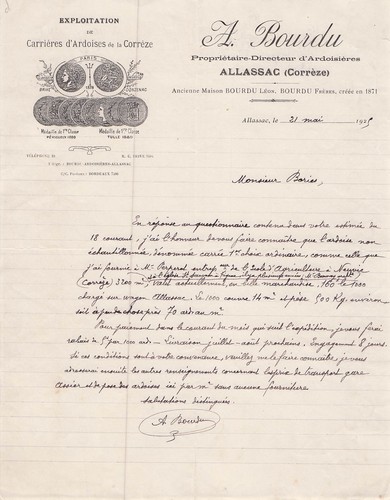 EXPLOITATION
DE
Carrières d'Ardoises de la Corrèze
PARIS
1878
BRIVE
Médaille de 1re Classe
PÉRIGUEUX 1880
Médaille de 1re Classe
TULLE 1880
A. Bourdu
Propriétaire-Directeur d'Ardoisières
ALLASSAC (Corrèze)
Ancienne Maison BOURDU Léon, BOURDU Frères, créée en 1871
Allassac, le 21 mai 19
BOURDU-ARDOISIÈRES-ALLASSAC
BORDEAUX
Monsieur Bories,
En réponse au questionnaire contenu dans votre estimée du
18 courant, j'ai l'honneur de vous faire connaître que l'ardoise non
échantillonnée, dénommée carrée 1er choix ordinaire, comme celle que
j'ai fournie à Mr entrepr de l'Ecole d'Agriculture à Neuvic
(Corrèze) 3200 m², vaut actuellement, en belle marchandise, 160 f le 1000
chargé sur wagon Allassac. Le 1000 couvre 14 m² et pèse 500 Kg. environ
soit à peu de chose près 70 ard. au m²
Pour paiement dans le courant du mois qui suit l'expédition, je vous ferai
rabais de 5f par 1000 ard. Livraison juillet-août prochains. Engagement 8 jours.
Si ces conditions sont à votre convenance, veuillez me le faire connaître, je vous
adresserai ensuite les autres renseignements concernant les prix de transport gare
et de pose des ardoises ici par m² sans aucune fourniture
Salutations distinguées.
A. Bourdu